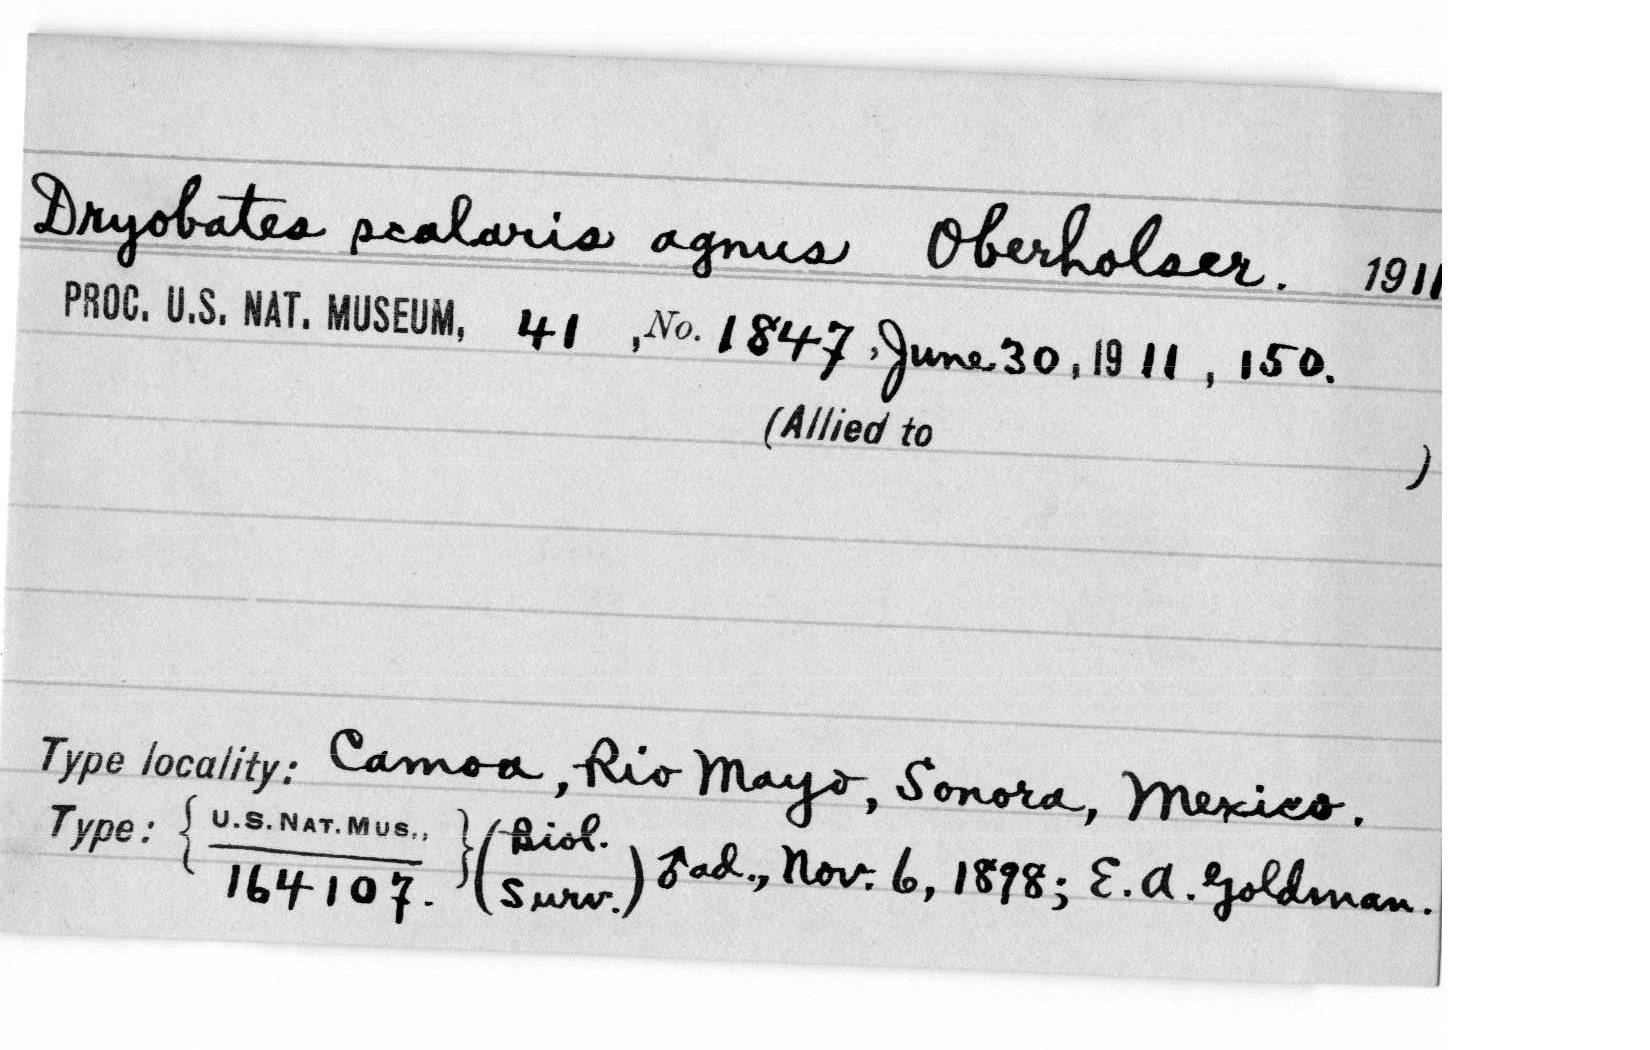 Dryobates scalaris agnus Oberholser. 1911
PROC. U.S. NAT. MUSEUM, 41, No. 1847, June 30, 1911, 150.
(Allied to )
Type locality: Camoa, Rio Mayo, Sonora, Mexico.
Type: { U.S. NAT. MUS., 164107. } (Biol. Surv.) ♂ ad., Nov. 6, 1898; E. A. Goldman.